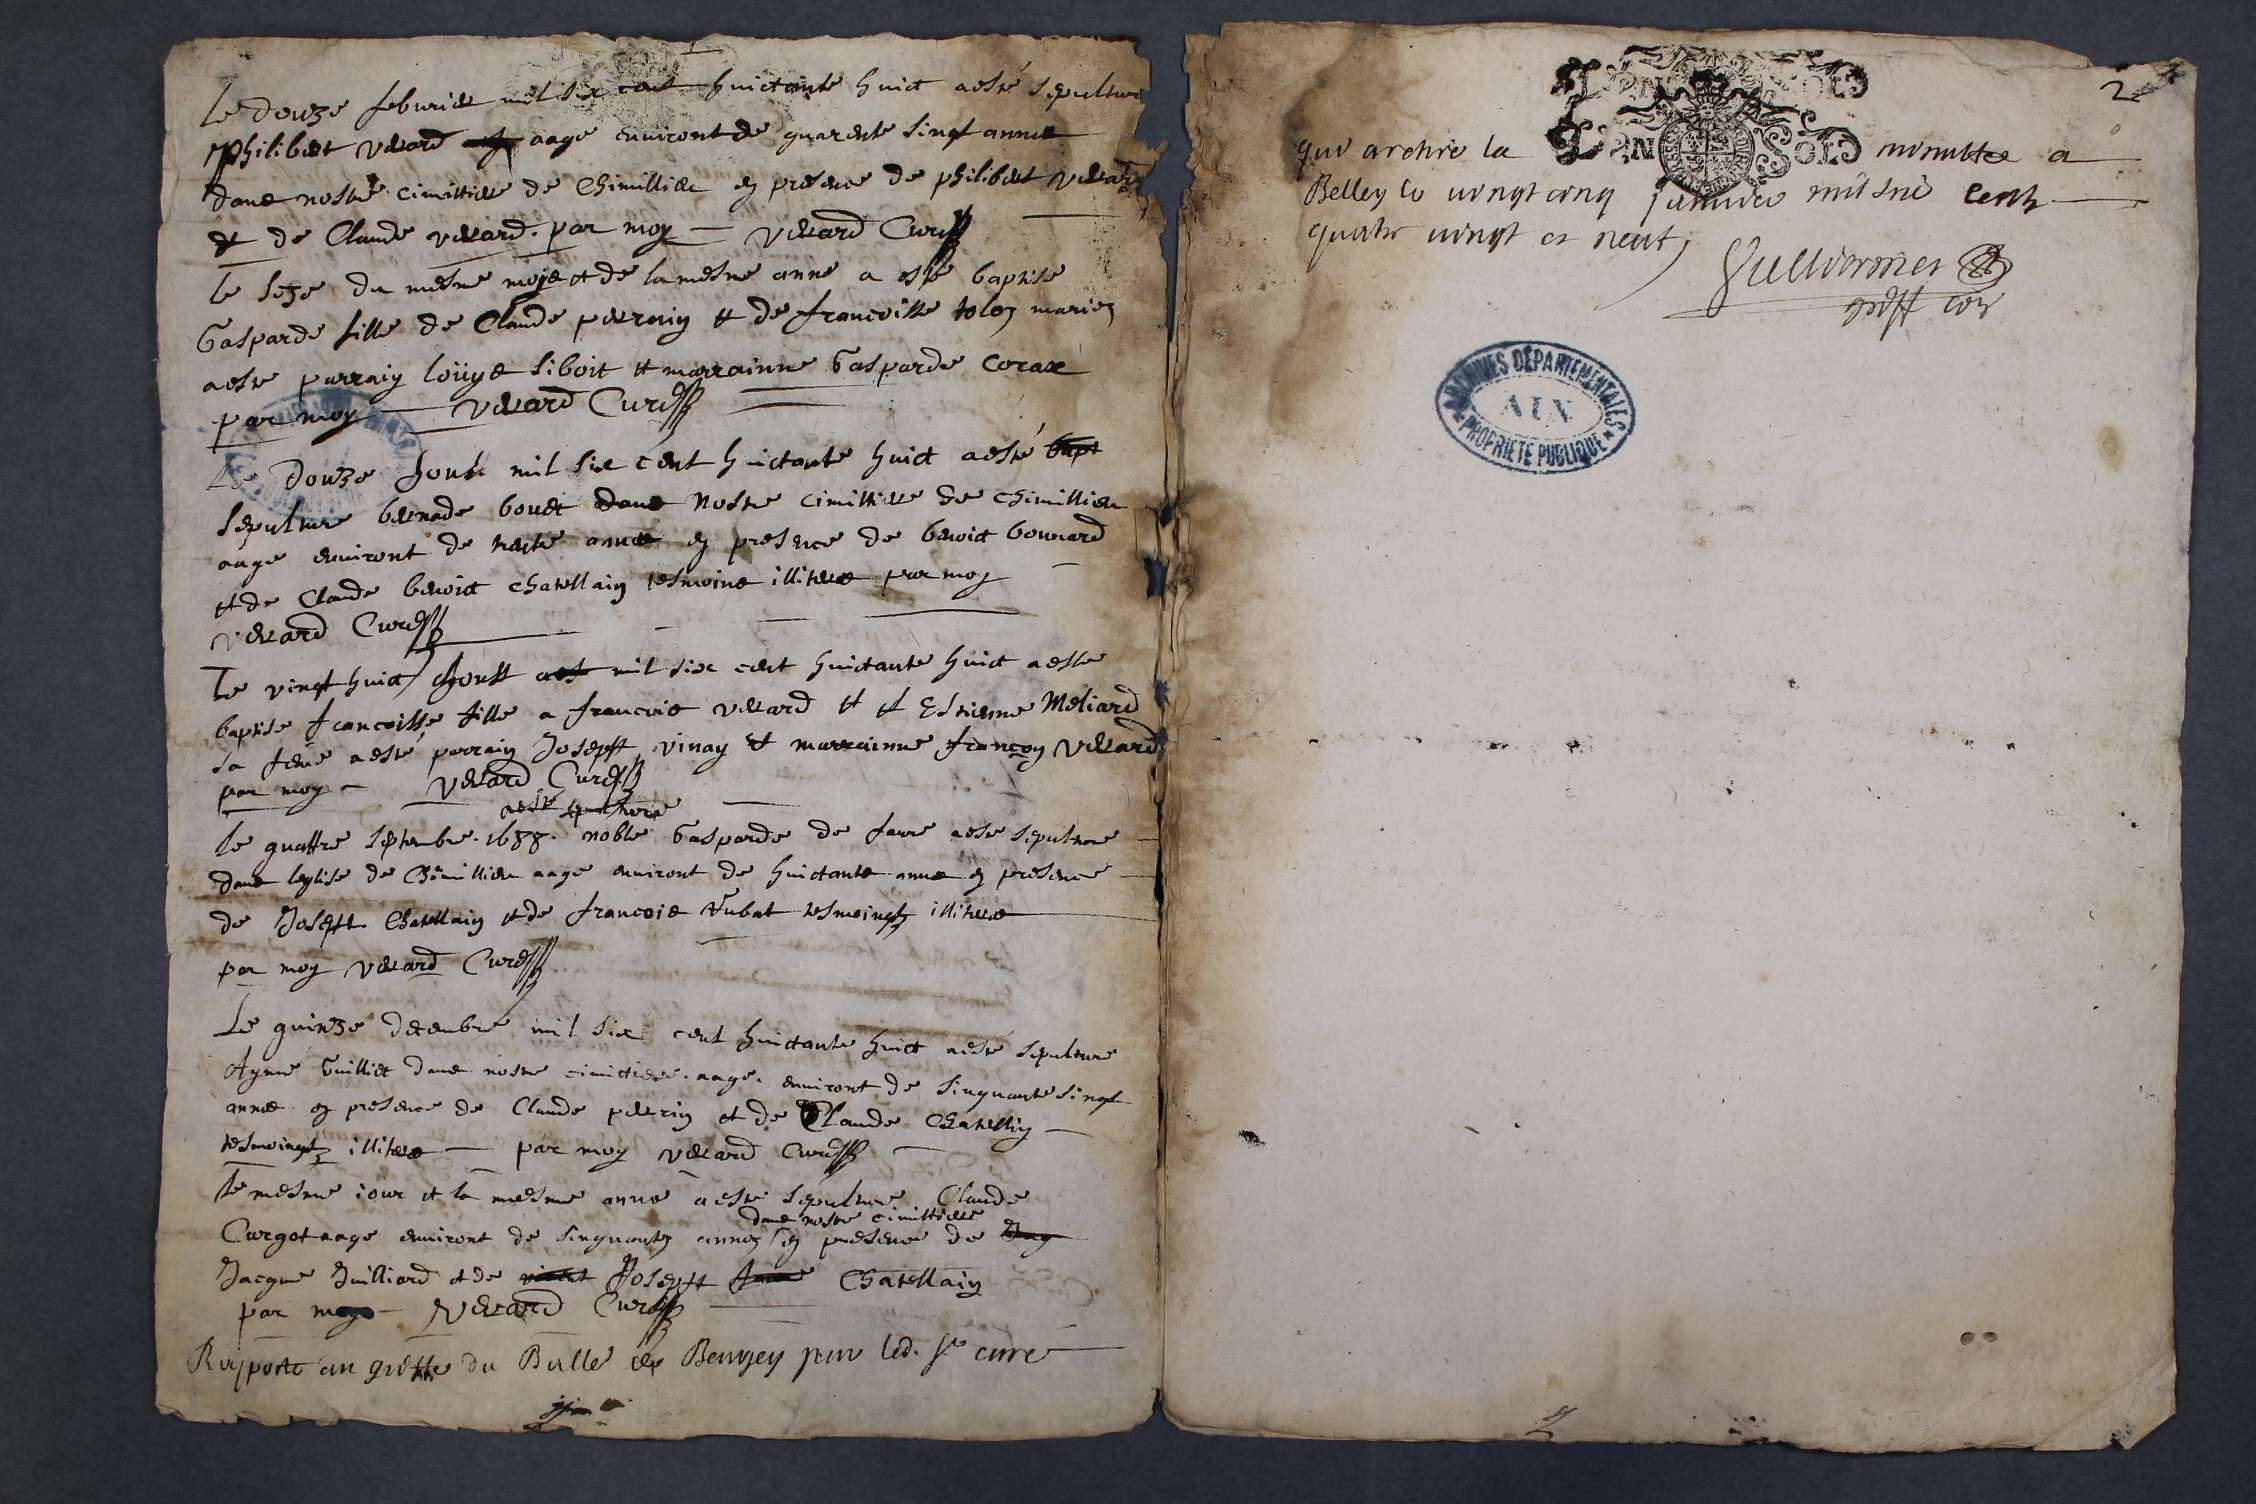 Le douze feburier mil six cent huictante huict aesté sepulture
philibert verard aage environt de quarente sinqt annee
dans nostre cimittiere de Chimillieu en presence de philibert verard
et de Claude verard. par moy verard Curé
le seze du mesme moys et de la mesme anne a esté baptise
Gasparde fille de Claude perrain et de francoisse tolon mariez
aeste parrain louys siboit et marrainne Gasparde corax
par moy verard Curé
Le douze Aoust mil six cent huictante huict aesté bapt
sepulture bernade bouet dans nostre cimittiere de chimillieu
aage environt de trente annee en presence de benoict bonnard
et de Claude benoict chatellain tesmoins illiteres par moy
verard Curé
Le vingt huict Aoust aest mil six cent huictante huict aeste
baptise francoisse fille a francois verard et et Estienne Meliard
sa feme aesté parrain Joseph vinay et marrainne françoy verard
par moy verard Curé
aesté sepulture
le quattre septembre. 1688. noble Gasparde de faure aeste sepulture
dans leglise de Chimillieu aage environt de huictante annee en presence
de Joseph Chatellain et de francois Tubat tesmoingtz illiteres
par moy verard Curé
Le quinze decembre mil six cent huictante huict aesté sepulture
Ayme Guilliet dans nostre cimittiere. aage. environt de sinquante sinqt
annee en presence de Claude perrin et de Claude Chatellin
tesmoingtz illiteres par moy verard Curé
le mesme iour et la mesme anne aeste sepulture Claude
dans nostre cimittiere
Curgot aage environt de sinquante annez en presence de
Jacque Juilliard et de Joseph Chatellain
par moy verard Curé
Rapporté au greffe du Balle de Beugey par led. sr curé
2
qui aretire la minutte a
Belley le vingt cinq janvier mil six cents
quatre vingt et neuf
Guillermet
greff com
ARCHIVES DÉPARTEMENTALES
AIN
PROPRIÉTÉ PUBLIQUE